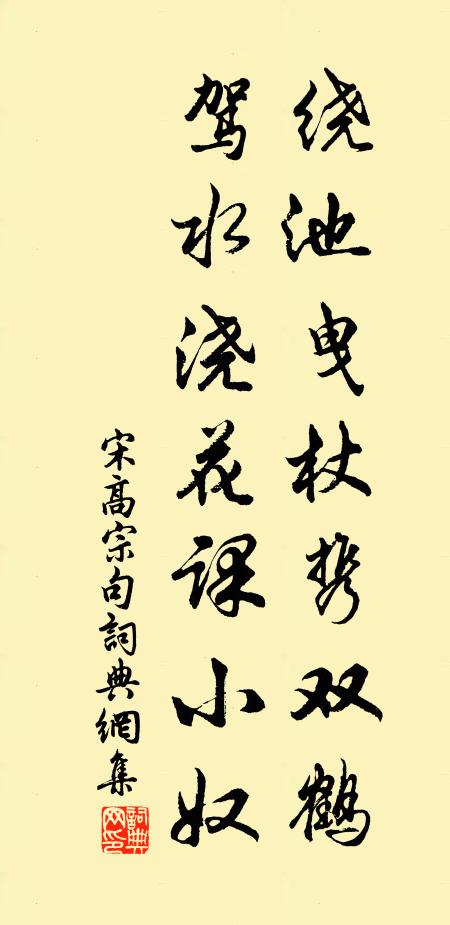 绕池曳杖携双鹤
驾水浇花课小奴
宋高宗句詞典網集
詞典網印